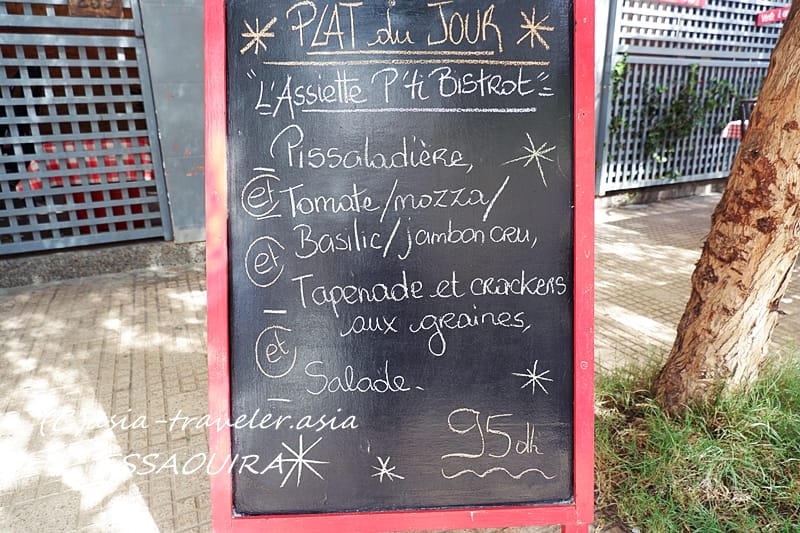 PLAT du JOUR
"L'Assiette P'ti Bistrot"
Pissaladière,
et
Tomate/mozza/
Basilic/jambon cru,
et
Tapenade et crackers
aux graines,
et
Salade.
95 dh
asia-traveler.asia
ESSAOUIRA